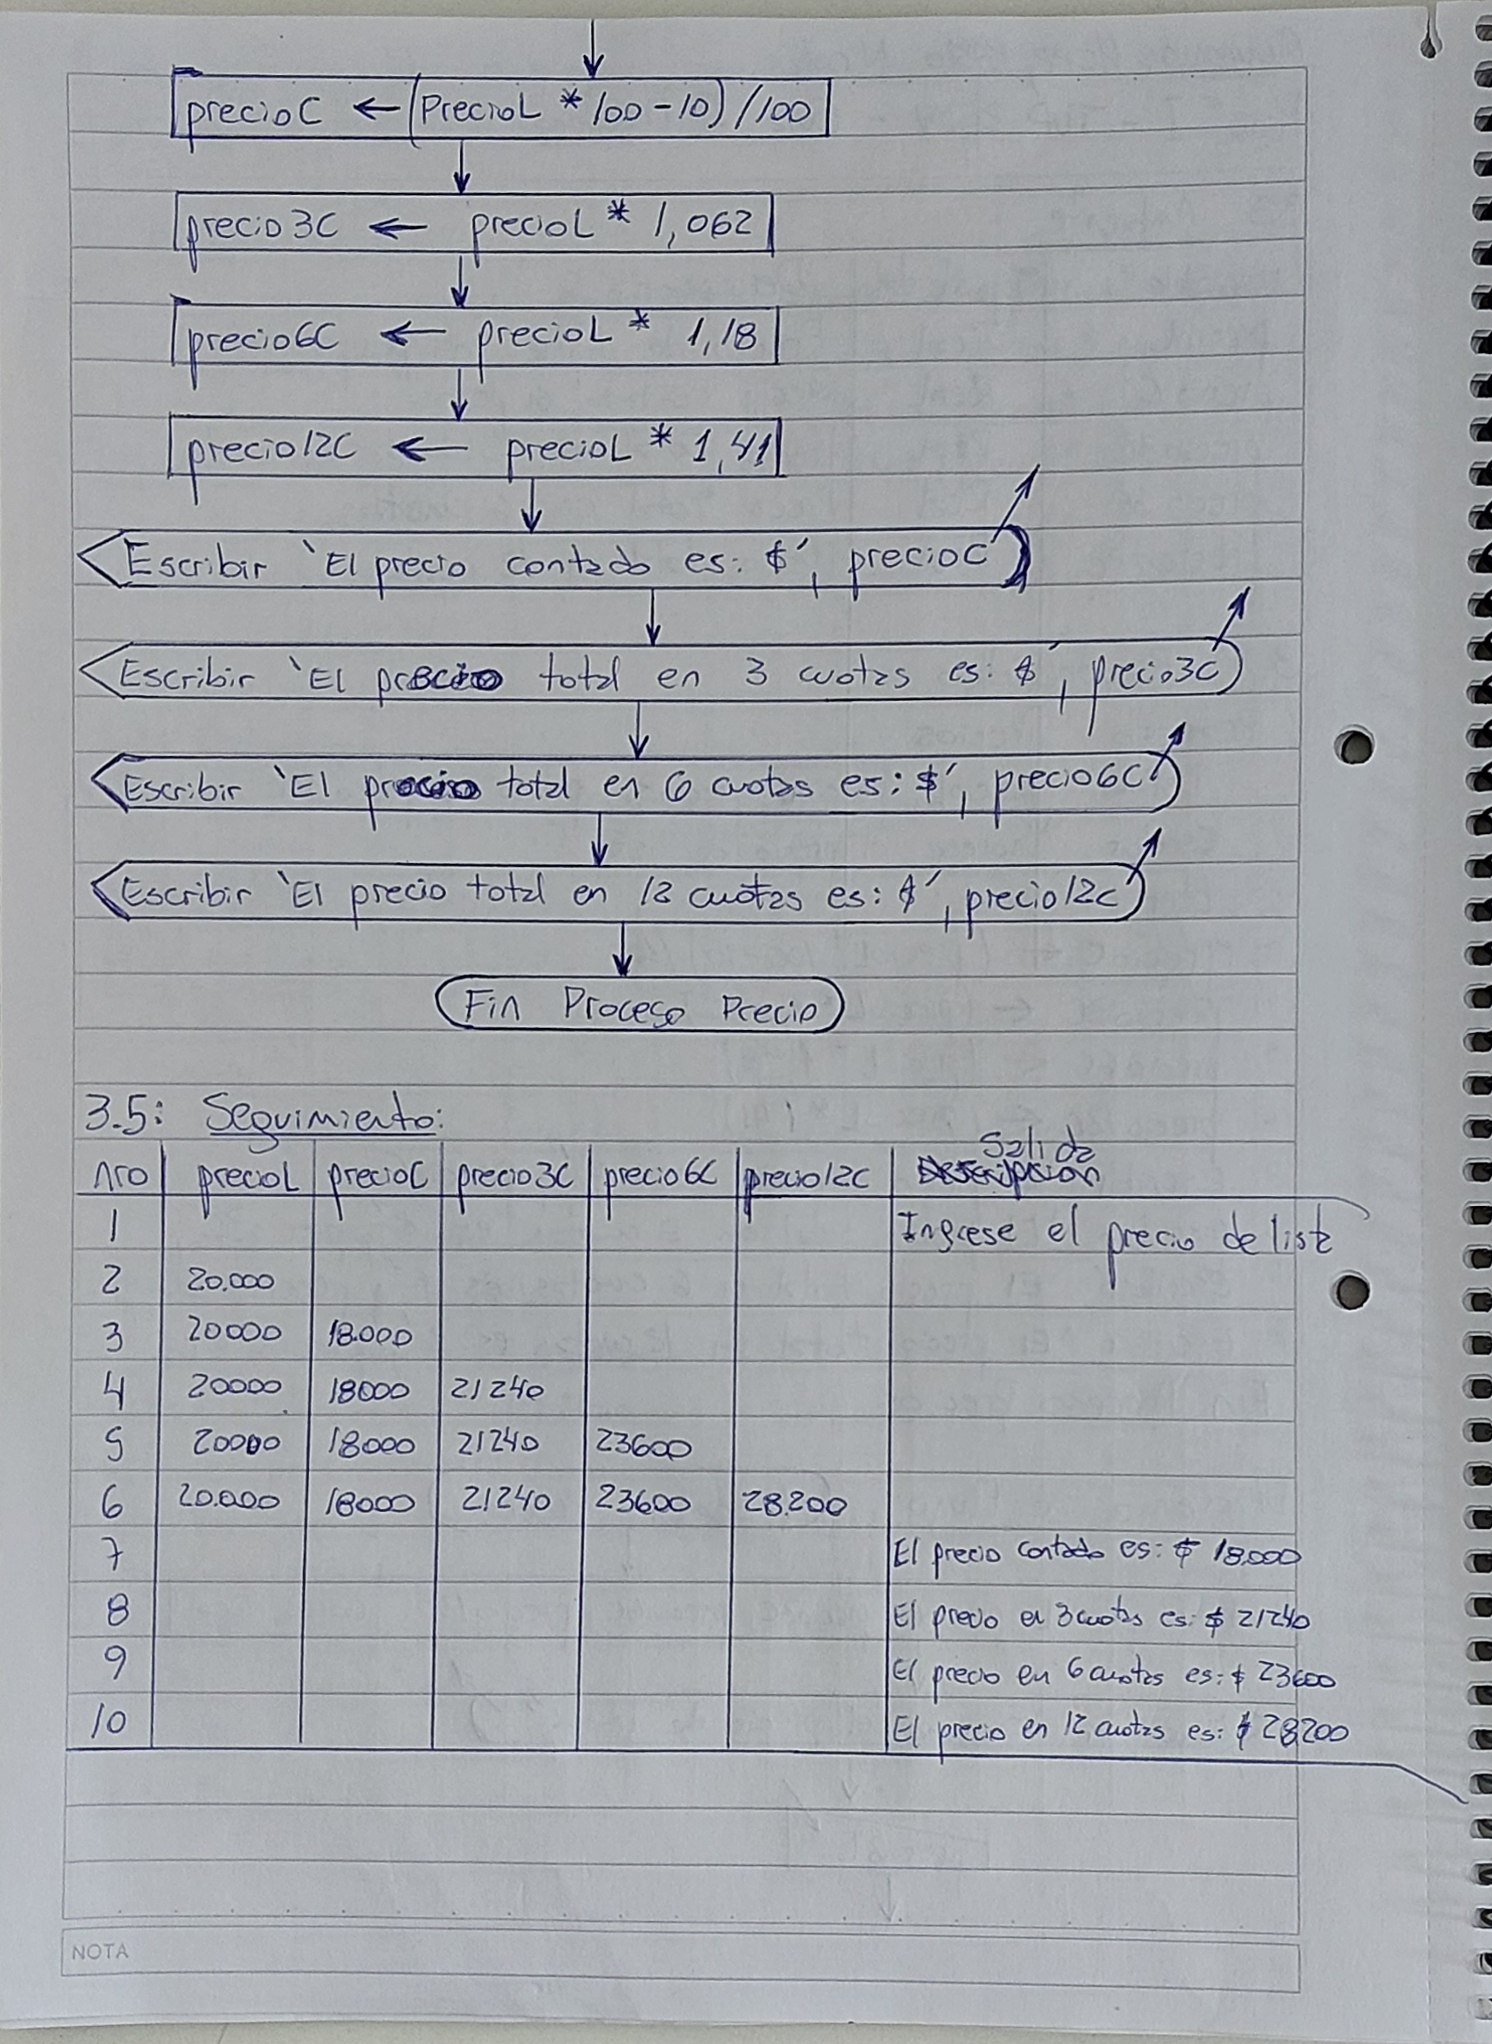 precioC ← (PrecioL * 100 - 10) / 100
precio3C ← precioL * 1,062
precio6C ← precioL * 1,18
precio12C ← precioL * 1,41
Escribir 'El precio contado es: $', precioC
Escribir 'El precio total en 3 cuotas es: $', precio3C
Escribir 'El precio total en 6 cuotas es: $', precio6C
Escribir 'El precio total en 12 cuotas es: $', precio12C
Fin Proceso Precio
3.5: Seguimiento:
Salida
nro precioL precioC precio3C precio6C precio12C Descripcion
1 Ingrese el precio de lista
2 20.000
3 20000 18.000
4 20000 18000 21240
5 20000 18000 21240 23600
6 20.000 18000 21240 23600 28.200
7 El precio contado es: $ 18.000
8 El precio en 3 cuotas es: $ 21240
9 El precio en 6 cuotas es: $ 23600
10 El precio en 12 cuotas es: $ 28200
NOTA